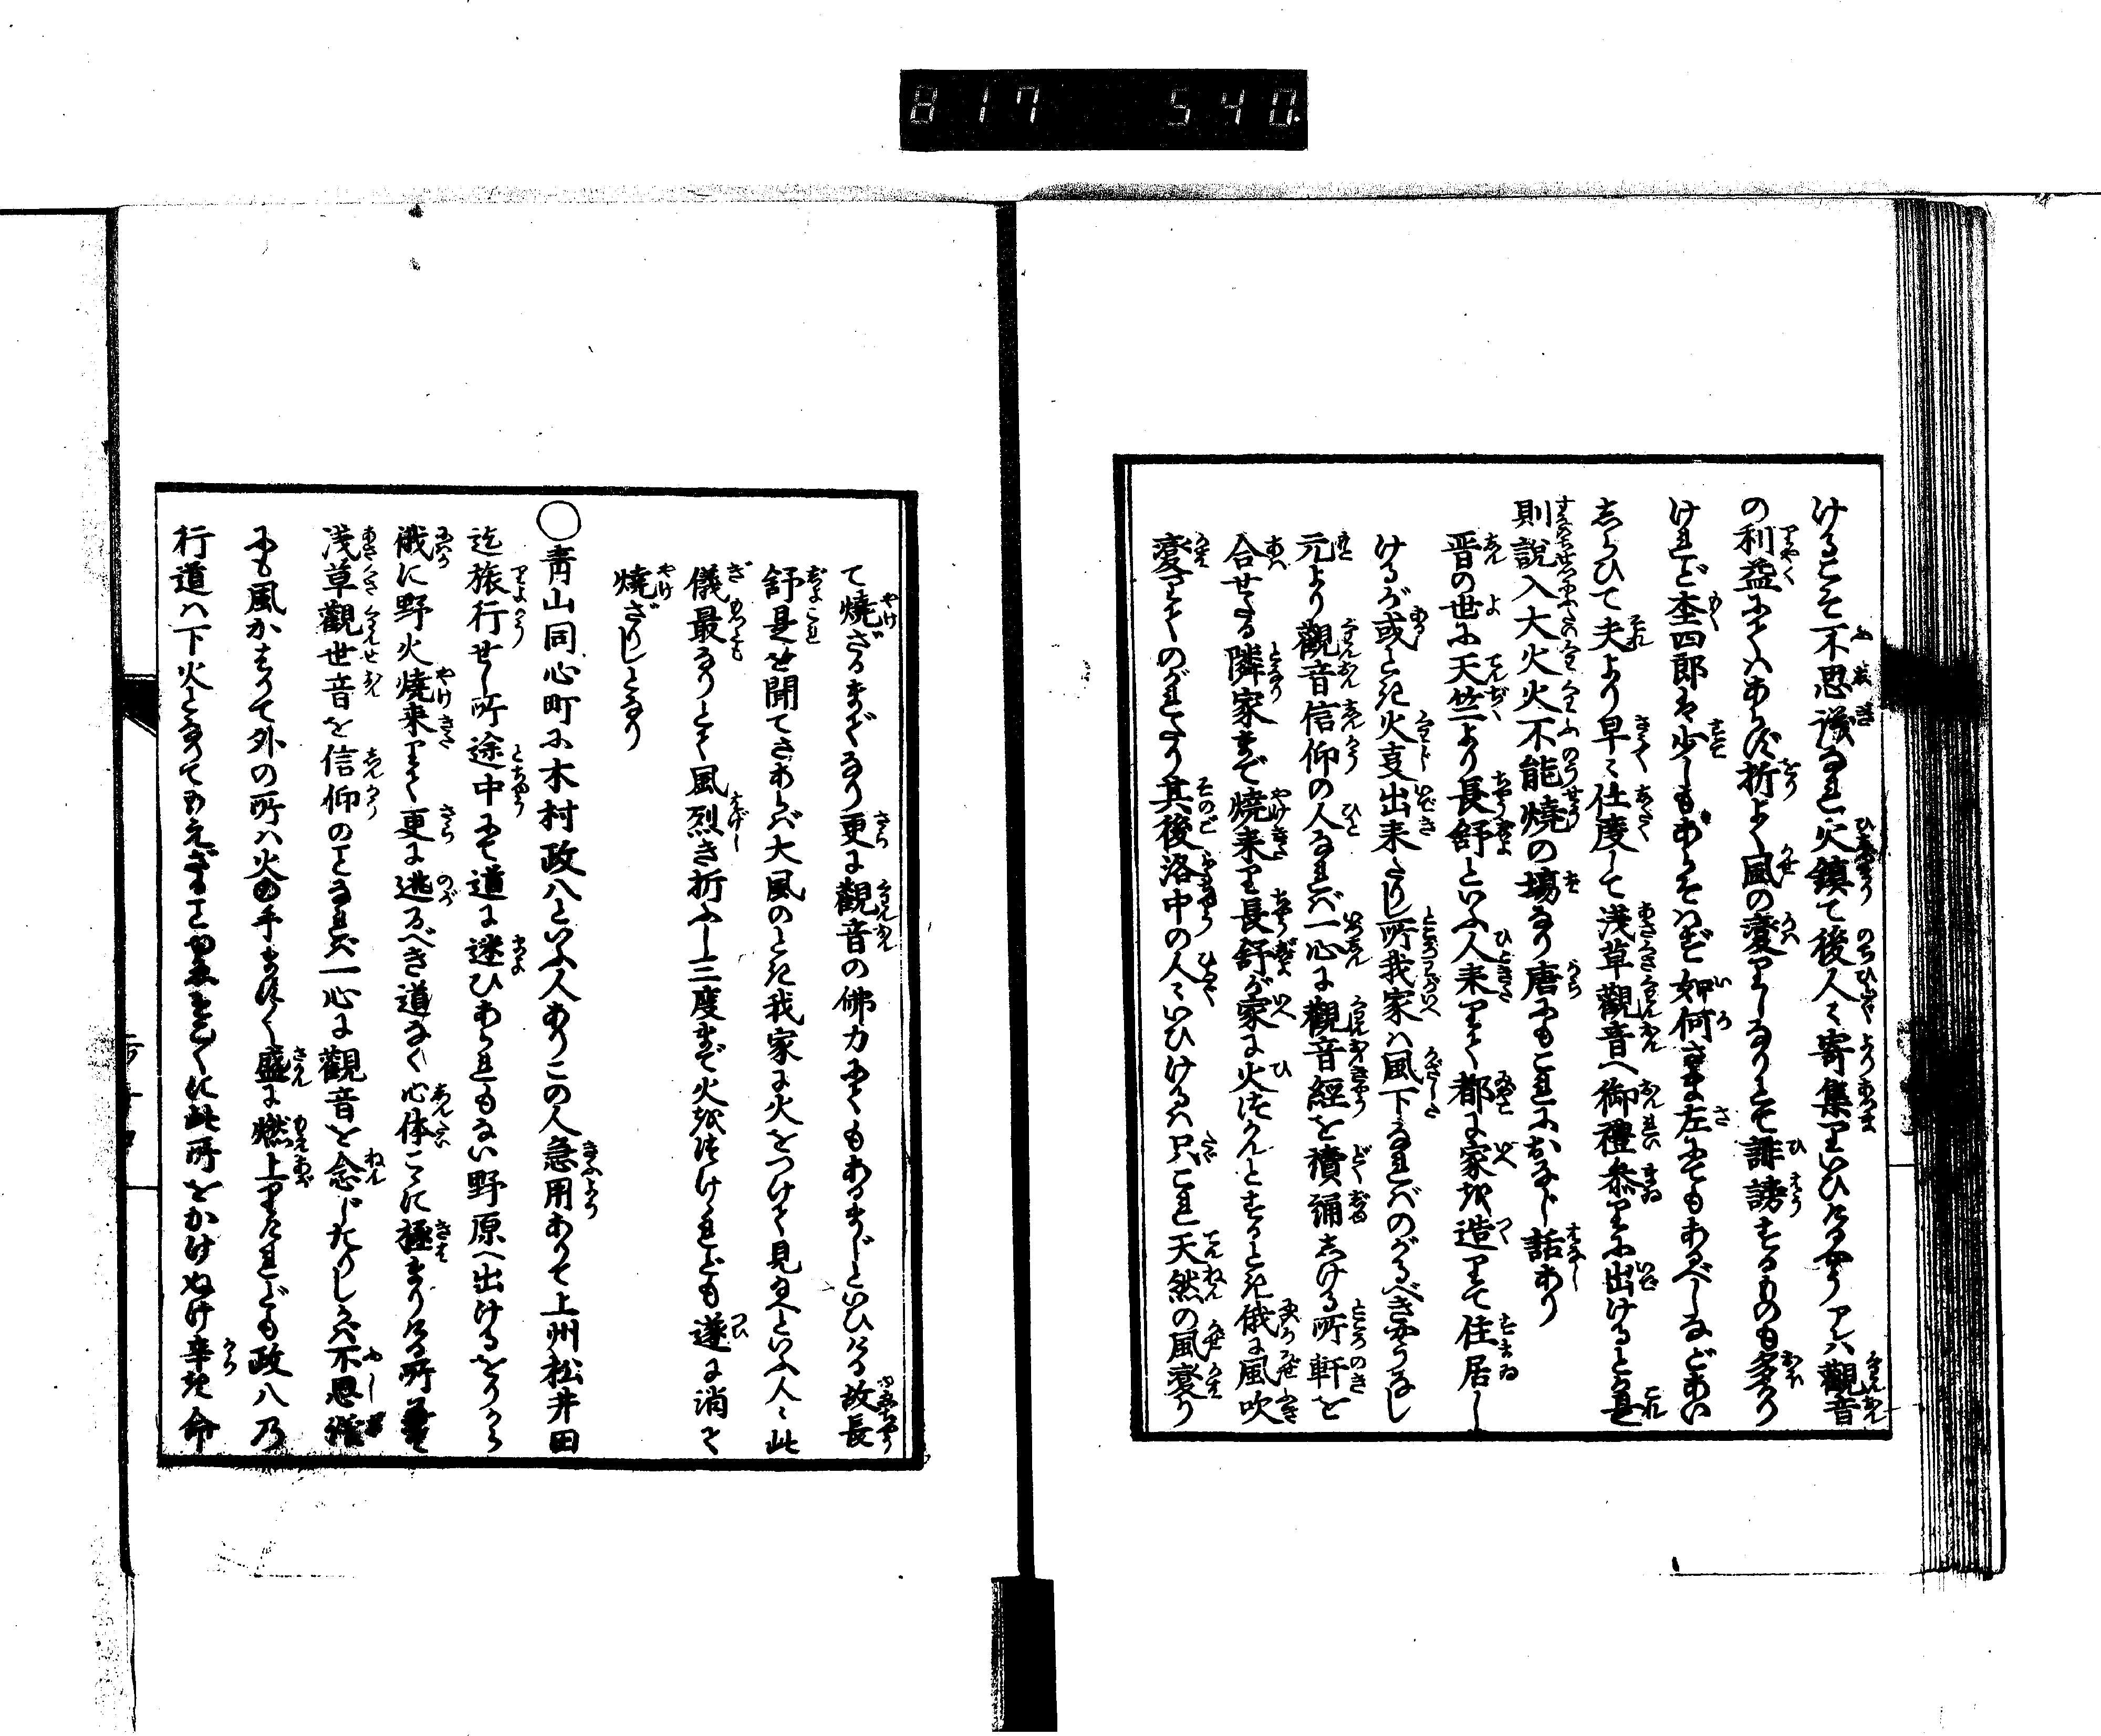 817 540.
けるこそ不思議なれ火鎮て後人々寄集りいひけるやうアレハ觀音
の利益にてハあらず折よく風の變りしなりとて誹謗するものも多かり
けれど杢四郎は少しもあらそはず如何さま左にてもあるべしなどあい
しらひて夫より早々仕度して淺草觀音へ御禮參りに出けるとか是
則說入大火火不能燒の塲なり唐にもこれにおなじ話あり
晋の世に天竺より長舒といふ人来りて都に家を造りて住居し
けるが或とき火夏出来たりし所我家ハ風下なれバのがるべきやうなし
元より觀音信仰の人なれバ一心に觀音經を讀誦しける所軒を
合せたる隣家まで燒来り長舒が家に火はやけんとするとき俄に風吹
變りてのがれたり其後洛中の人々いひけるハ只これ天然の風變り
て燒ざるまでなり更に觀音の佛力にてもあるまじといひける故長
舒是を聞てさあらバ大風のとき我家に火をつけて見給へといふ人々此
儀最なりとて風烈き折ふし三度まで火をつけけれども遂に消て
燒ざりしとなり
○青山同心町に木村政八といふ人ありこの人急用ありて上州松井田
迄旅行せし所途中にて道に迷ひあられもない野原へ出けるをりから
俄に野火燒来りて更に逃るべき道なく心体こゝに極まりける所
淺草觀世音を信仰のことなれバ一心に觀音を念じたりしかバ不思議
にも風かはりて外の所ハ火の手まはりて盛に燃上りたれども政八乃
行道ハ下火となりてもえざることゆゑ辛く此所をかけぬけ辛き命